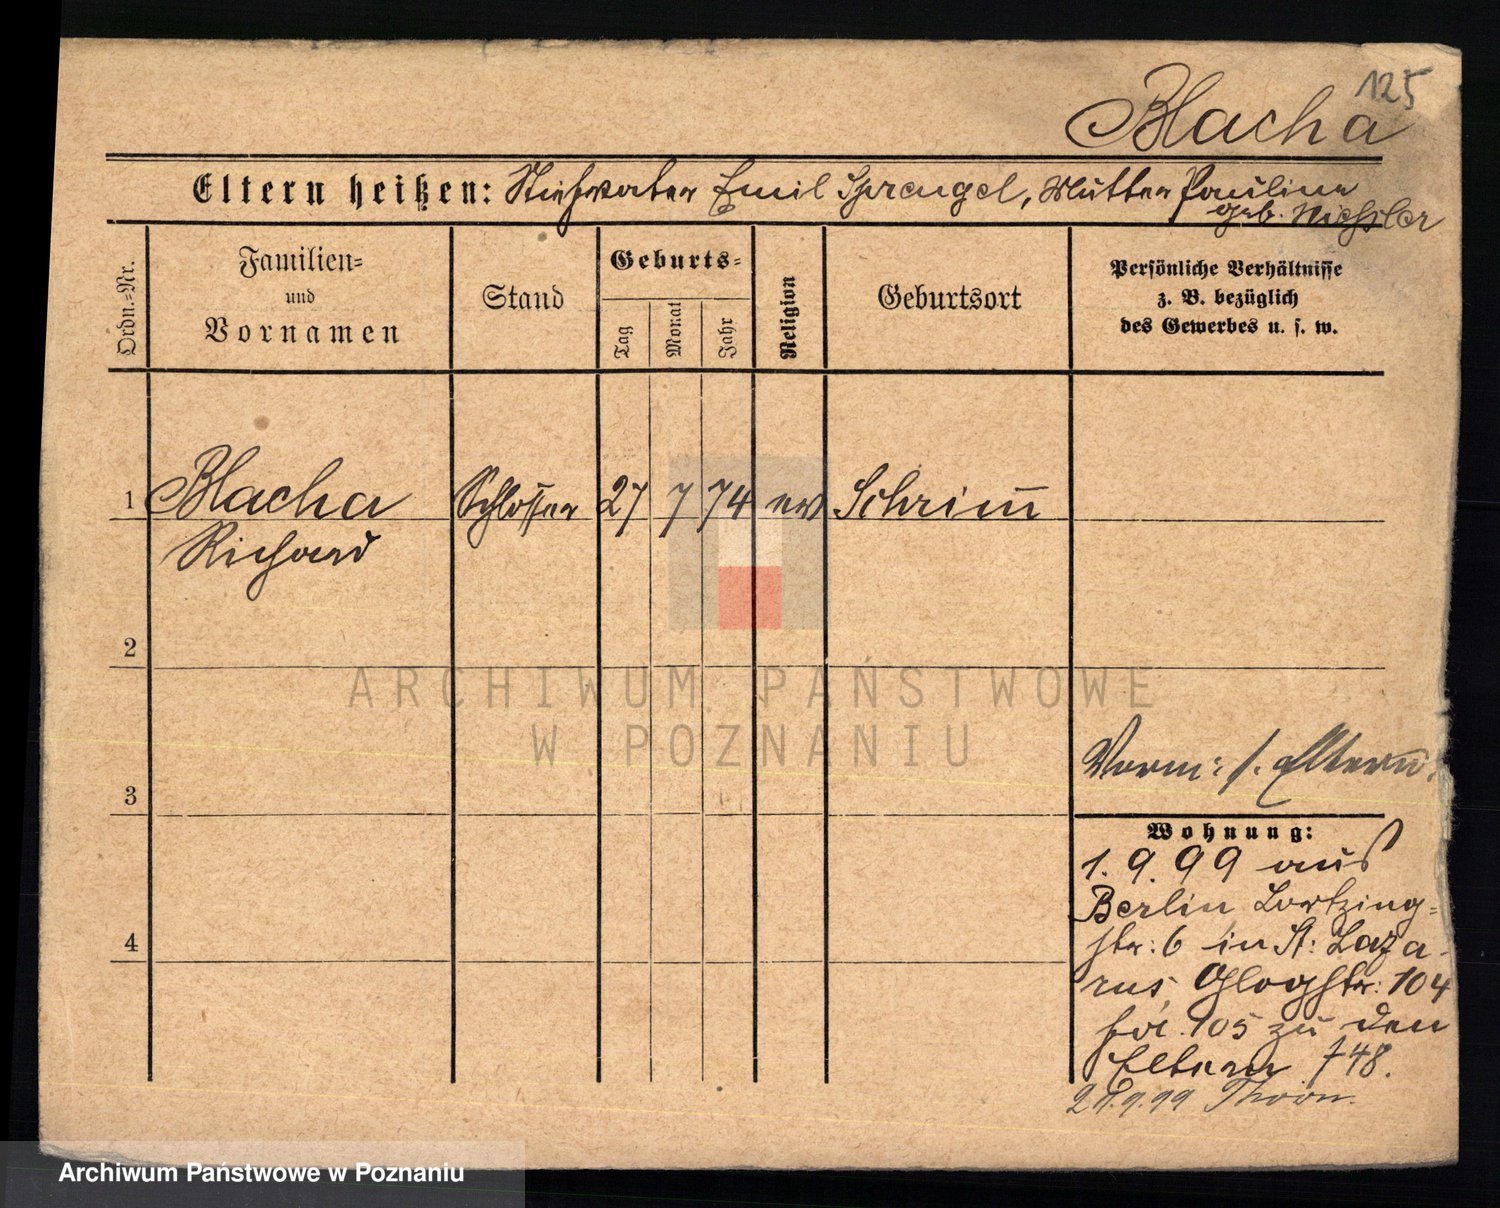 125
Blacha
Eltern heißen: Stiefvater Emil Sprengel, Mutter Pauline
geb.
Ordn.=Nr.
Familien=
und
Vornamen
Stand
Geburts=
Tag
Monat
Jahr
Religion
Geburtsort
Persönliche Verhältnisse
z. B. bezüglich
des Gewerbes u. s. w.
1 Blacha Schlosser 27 7 74 ev Schrimm
Richard
2
ARCHIWUM PAŃSTWOWE
W POZNANIU
Vorm: s. Eltern.
3
Wohnung:
1. 9. 99 aus
Berlin Lortzing=
str: 6 in St: Laza-
rus, Glogstr: 104
105 zu den
4
Eltern 748.
9.99 Thorn.
Archiwum Państwowe w Poznaniu